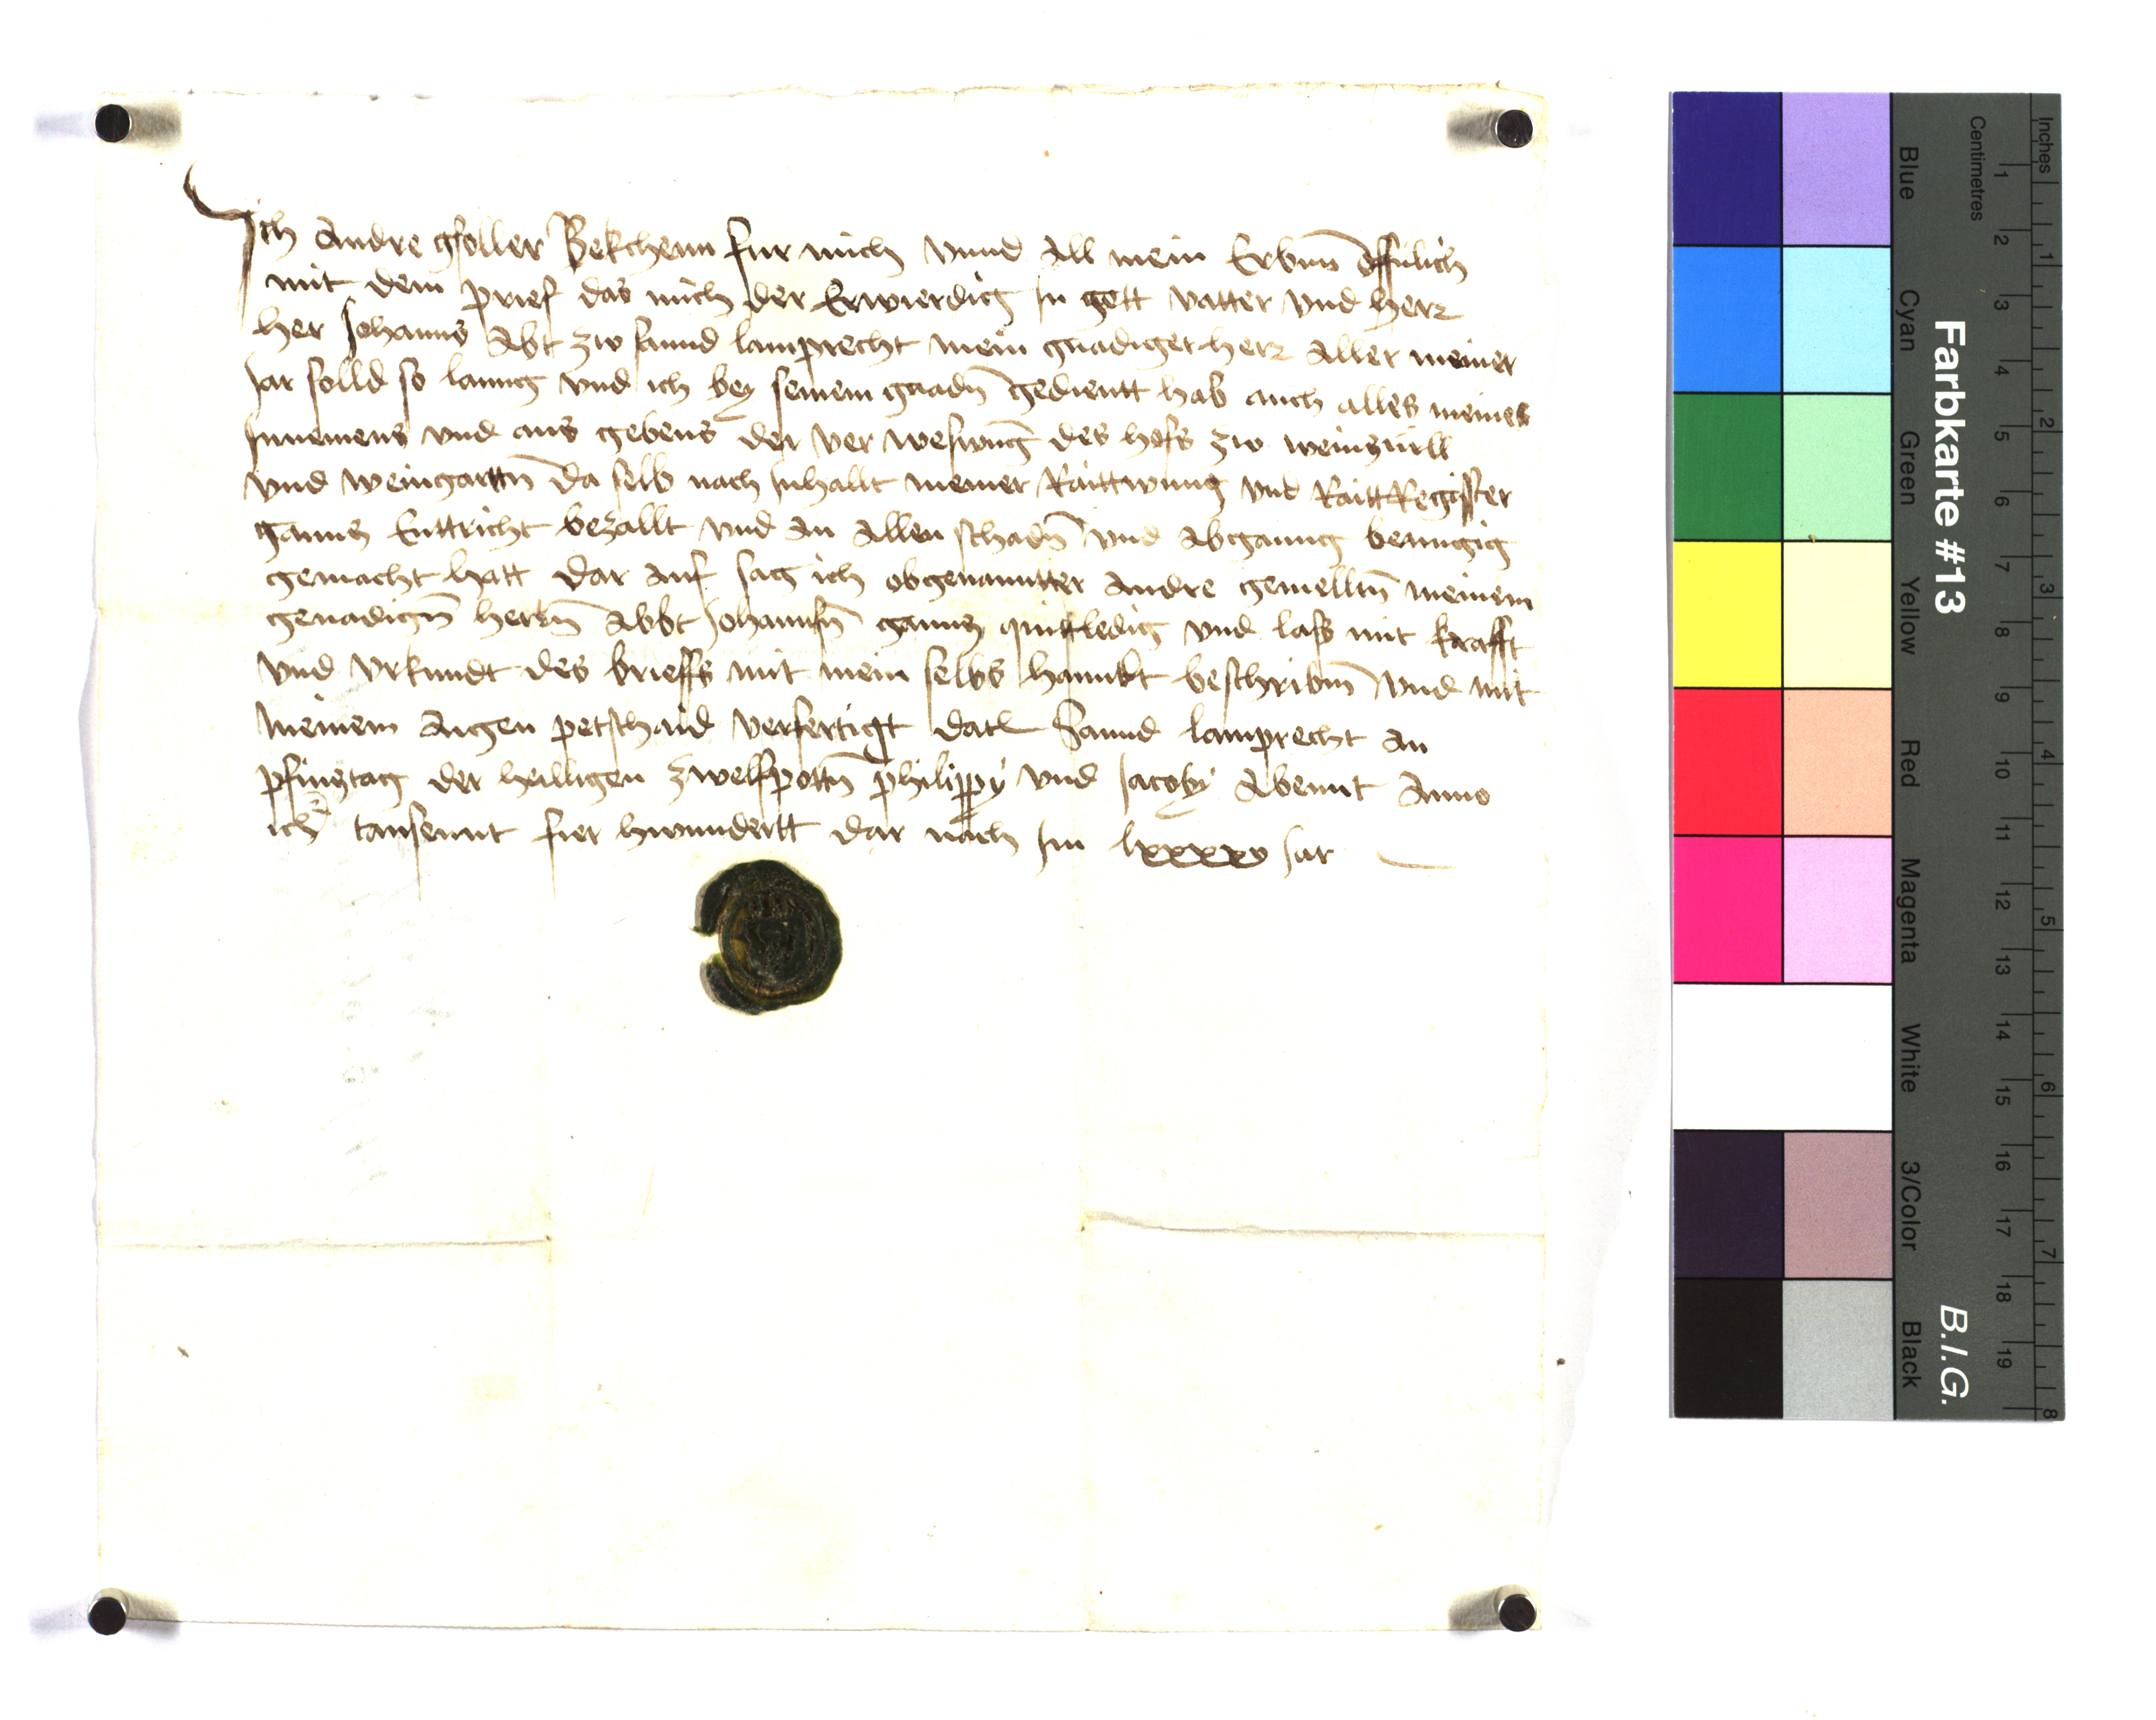 Ich Andre gsoller Bekchenn fur mich vnnd all mein Erbnn offnlich
mit dem prief das mich der Erwierdig In gott vatter vnd herr
her Johanns Abt zw sannd lamprecht mein gnadiger herr aller meiner
Jar solld so lanng vnd ich bey seinem gnadn gedientt hab auch alles meines
Innemens vnd aus gebens der ver weswng des hofs zw weinzurll
vnd weingarttn da selb nach Inhallt meiner Raittwung vnd RaittRegister
gannz Enttricht bezallt vnd an allen schadn vnd abganng benugig
gemacht hatt dar auf sag ich obgenanntter Andre gemelltn meinem
genadign herrn Abbt Johannsn gannz quittledig vnd lass mit krafft
vnd vrkundt des brieffs mit mein selbs hanndt beschribnn vnd mit
meinem Aigen petschaid verfertigt datl Sannd lamprecht an
pfinztag der heilligen zwelfpottn philippy vnd Jacoby Abennt Anno
tausennt fier hwundertt dar nach Im lxxxxv Jar
Farbkarte #13
B.I.G.
Inches
Centimetres
Blue Cyan Green Yellow Red Magenta White 3/Color Black
1 2 3 4 5 6 7 8 9 10 11 12 13 14 15 16 17 18 19
1 2 3 4 5 6 7 8